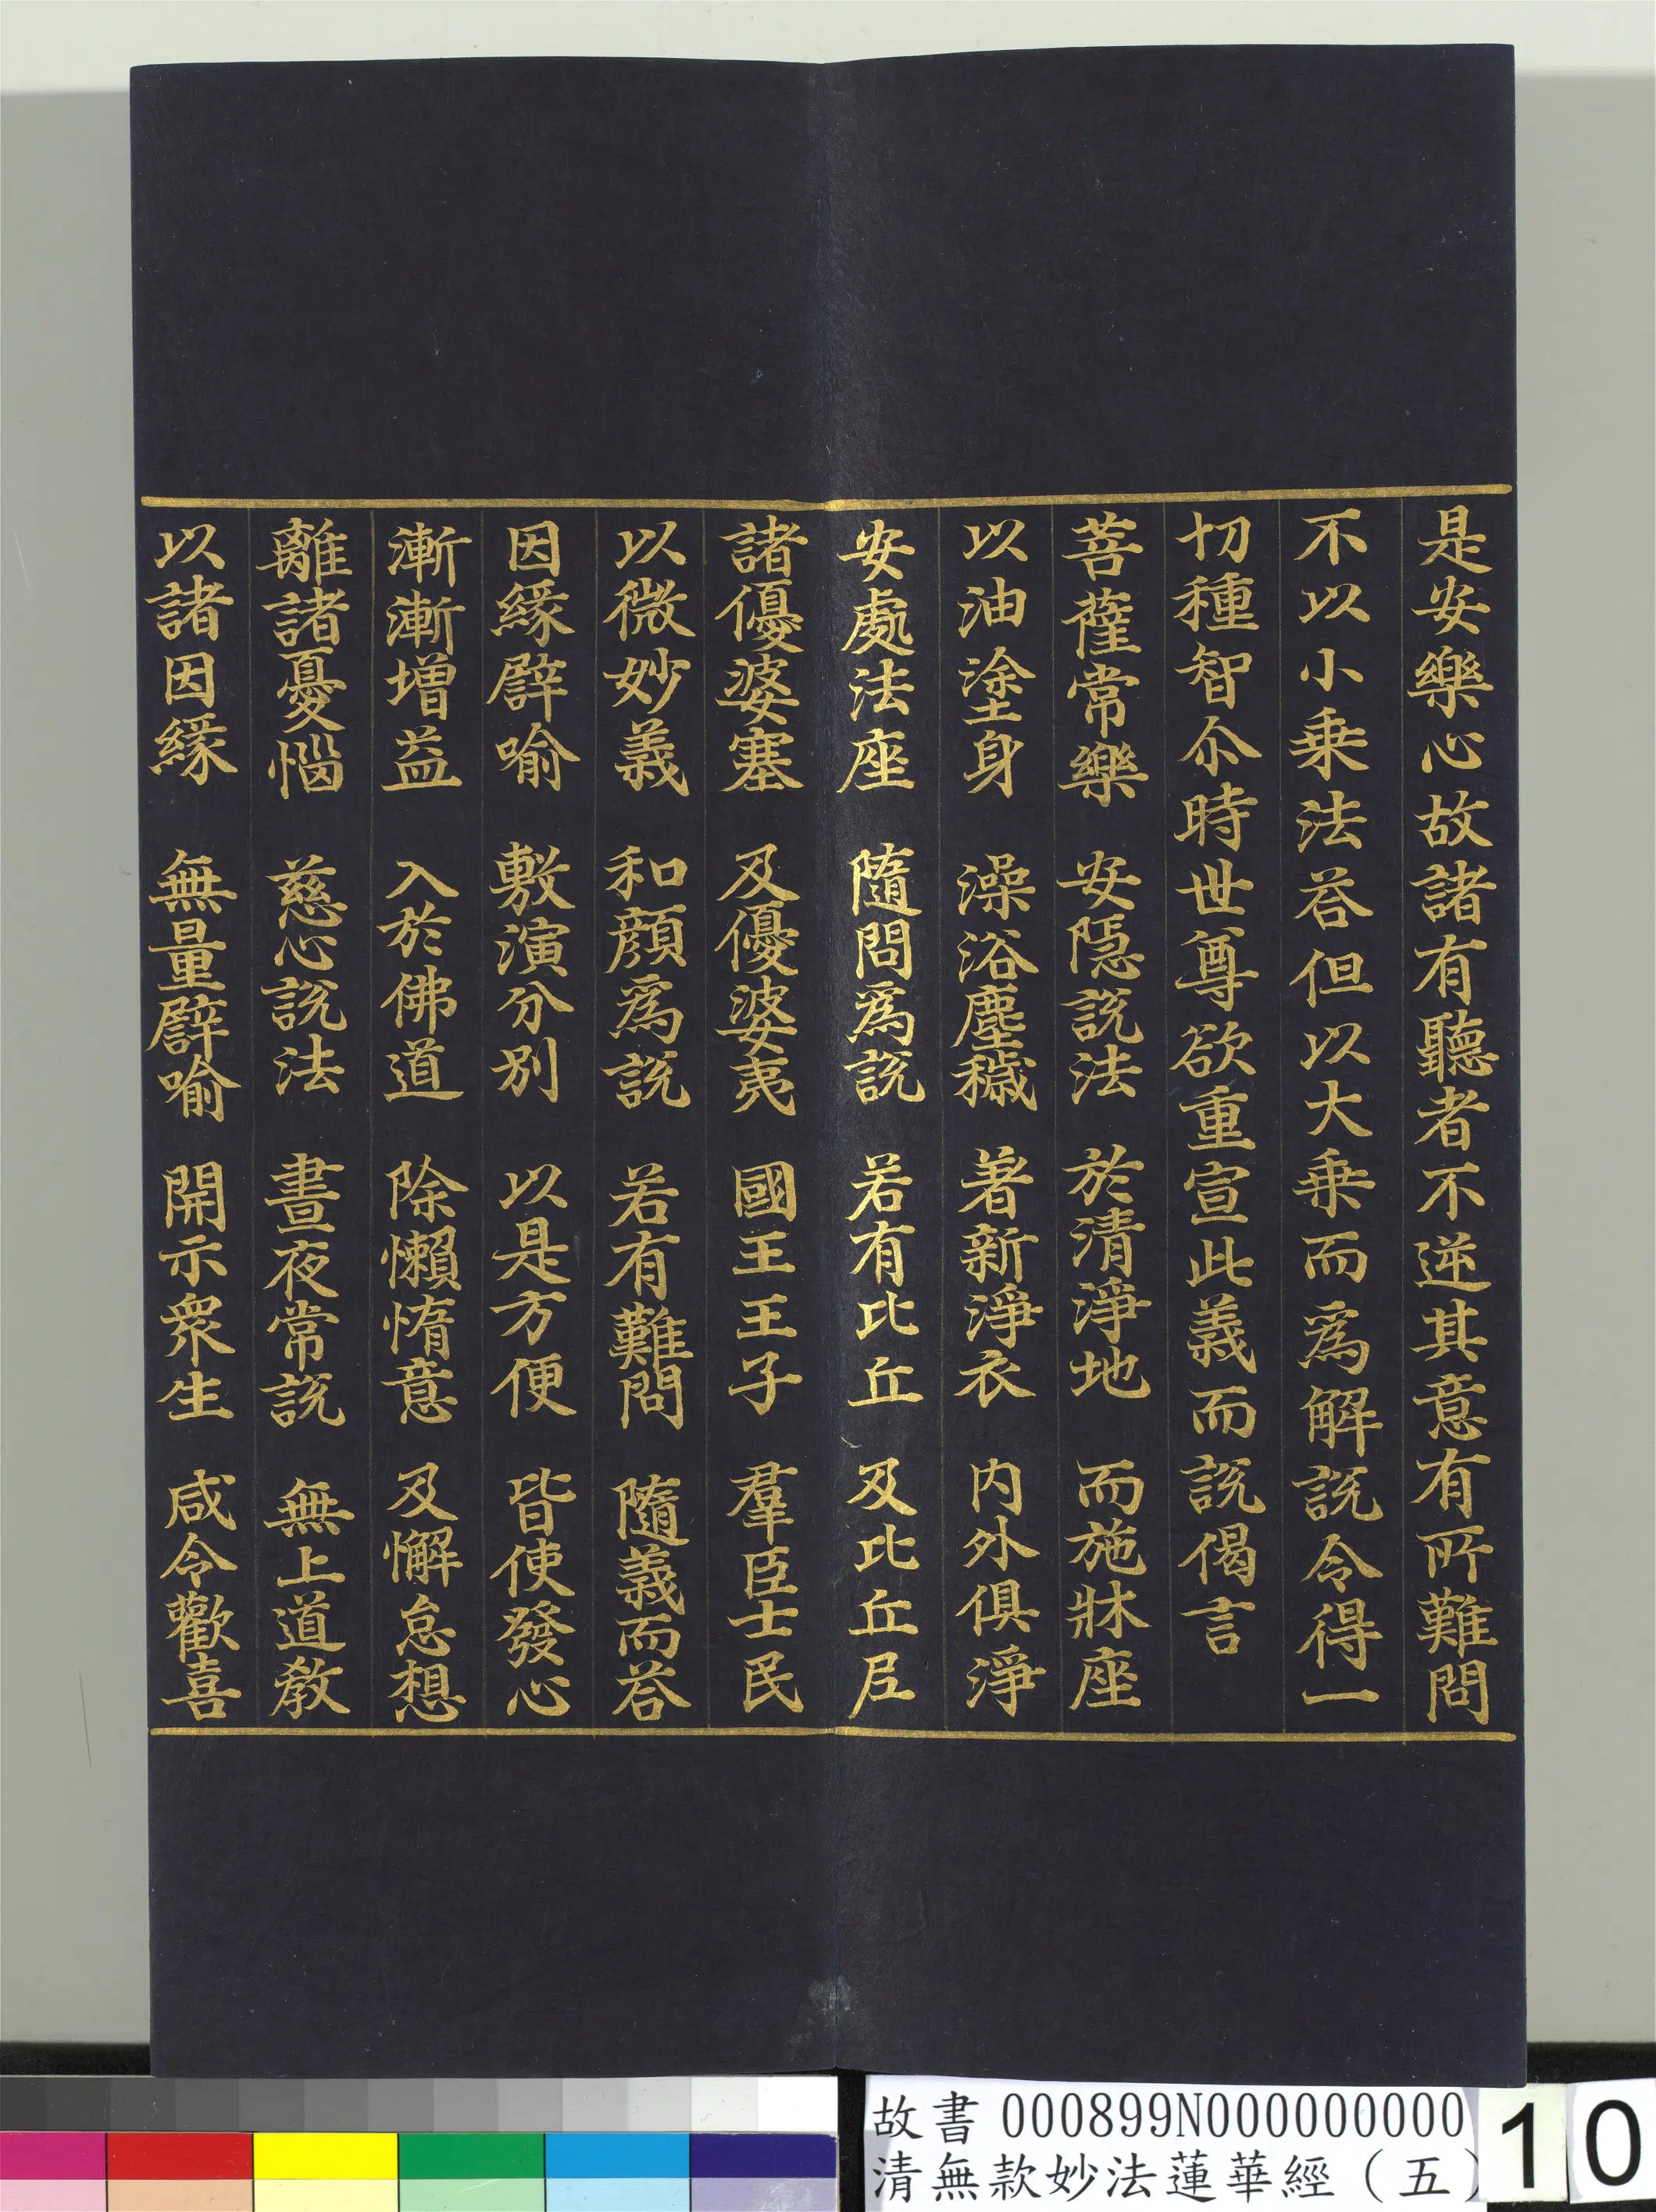 是安樂心故諸有聽者不逆其意有所難問
不以小乗法荅但以大乗而爲解説令得一
切種智尒時世尊欲重宣此義而説偈言
菩薩常樂 安隱説法 於清淨地 而施牀座
以油塗身 澡浴塵穢 著新淨衣 内外俱淨
安處法座 隨問爲説 若有比丘 及比丘尼
諸優婆塞 及優婆夷 國王王子 羣臣士民
以微妙義 和顔爲説 若有難問 隨義而荅
因緣譬喻 敷演分別 以是方便 皆使發心
漸漸增益 入於佛道 除懶惰意 及懈怠想
離諸憂惱 慈心説法 晝夜常説 無上道教
以諸因緣 無量譬喻 開示衆生 咸令歡喜
故書 000899N000000000
清無款妙法蓮華經（五）
10